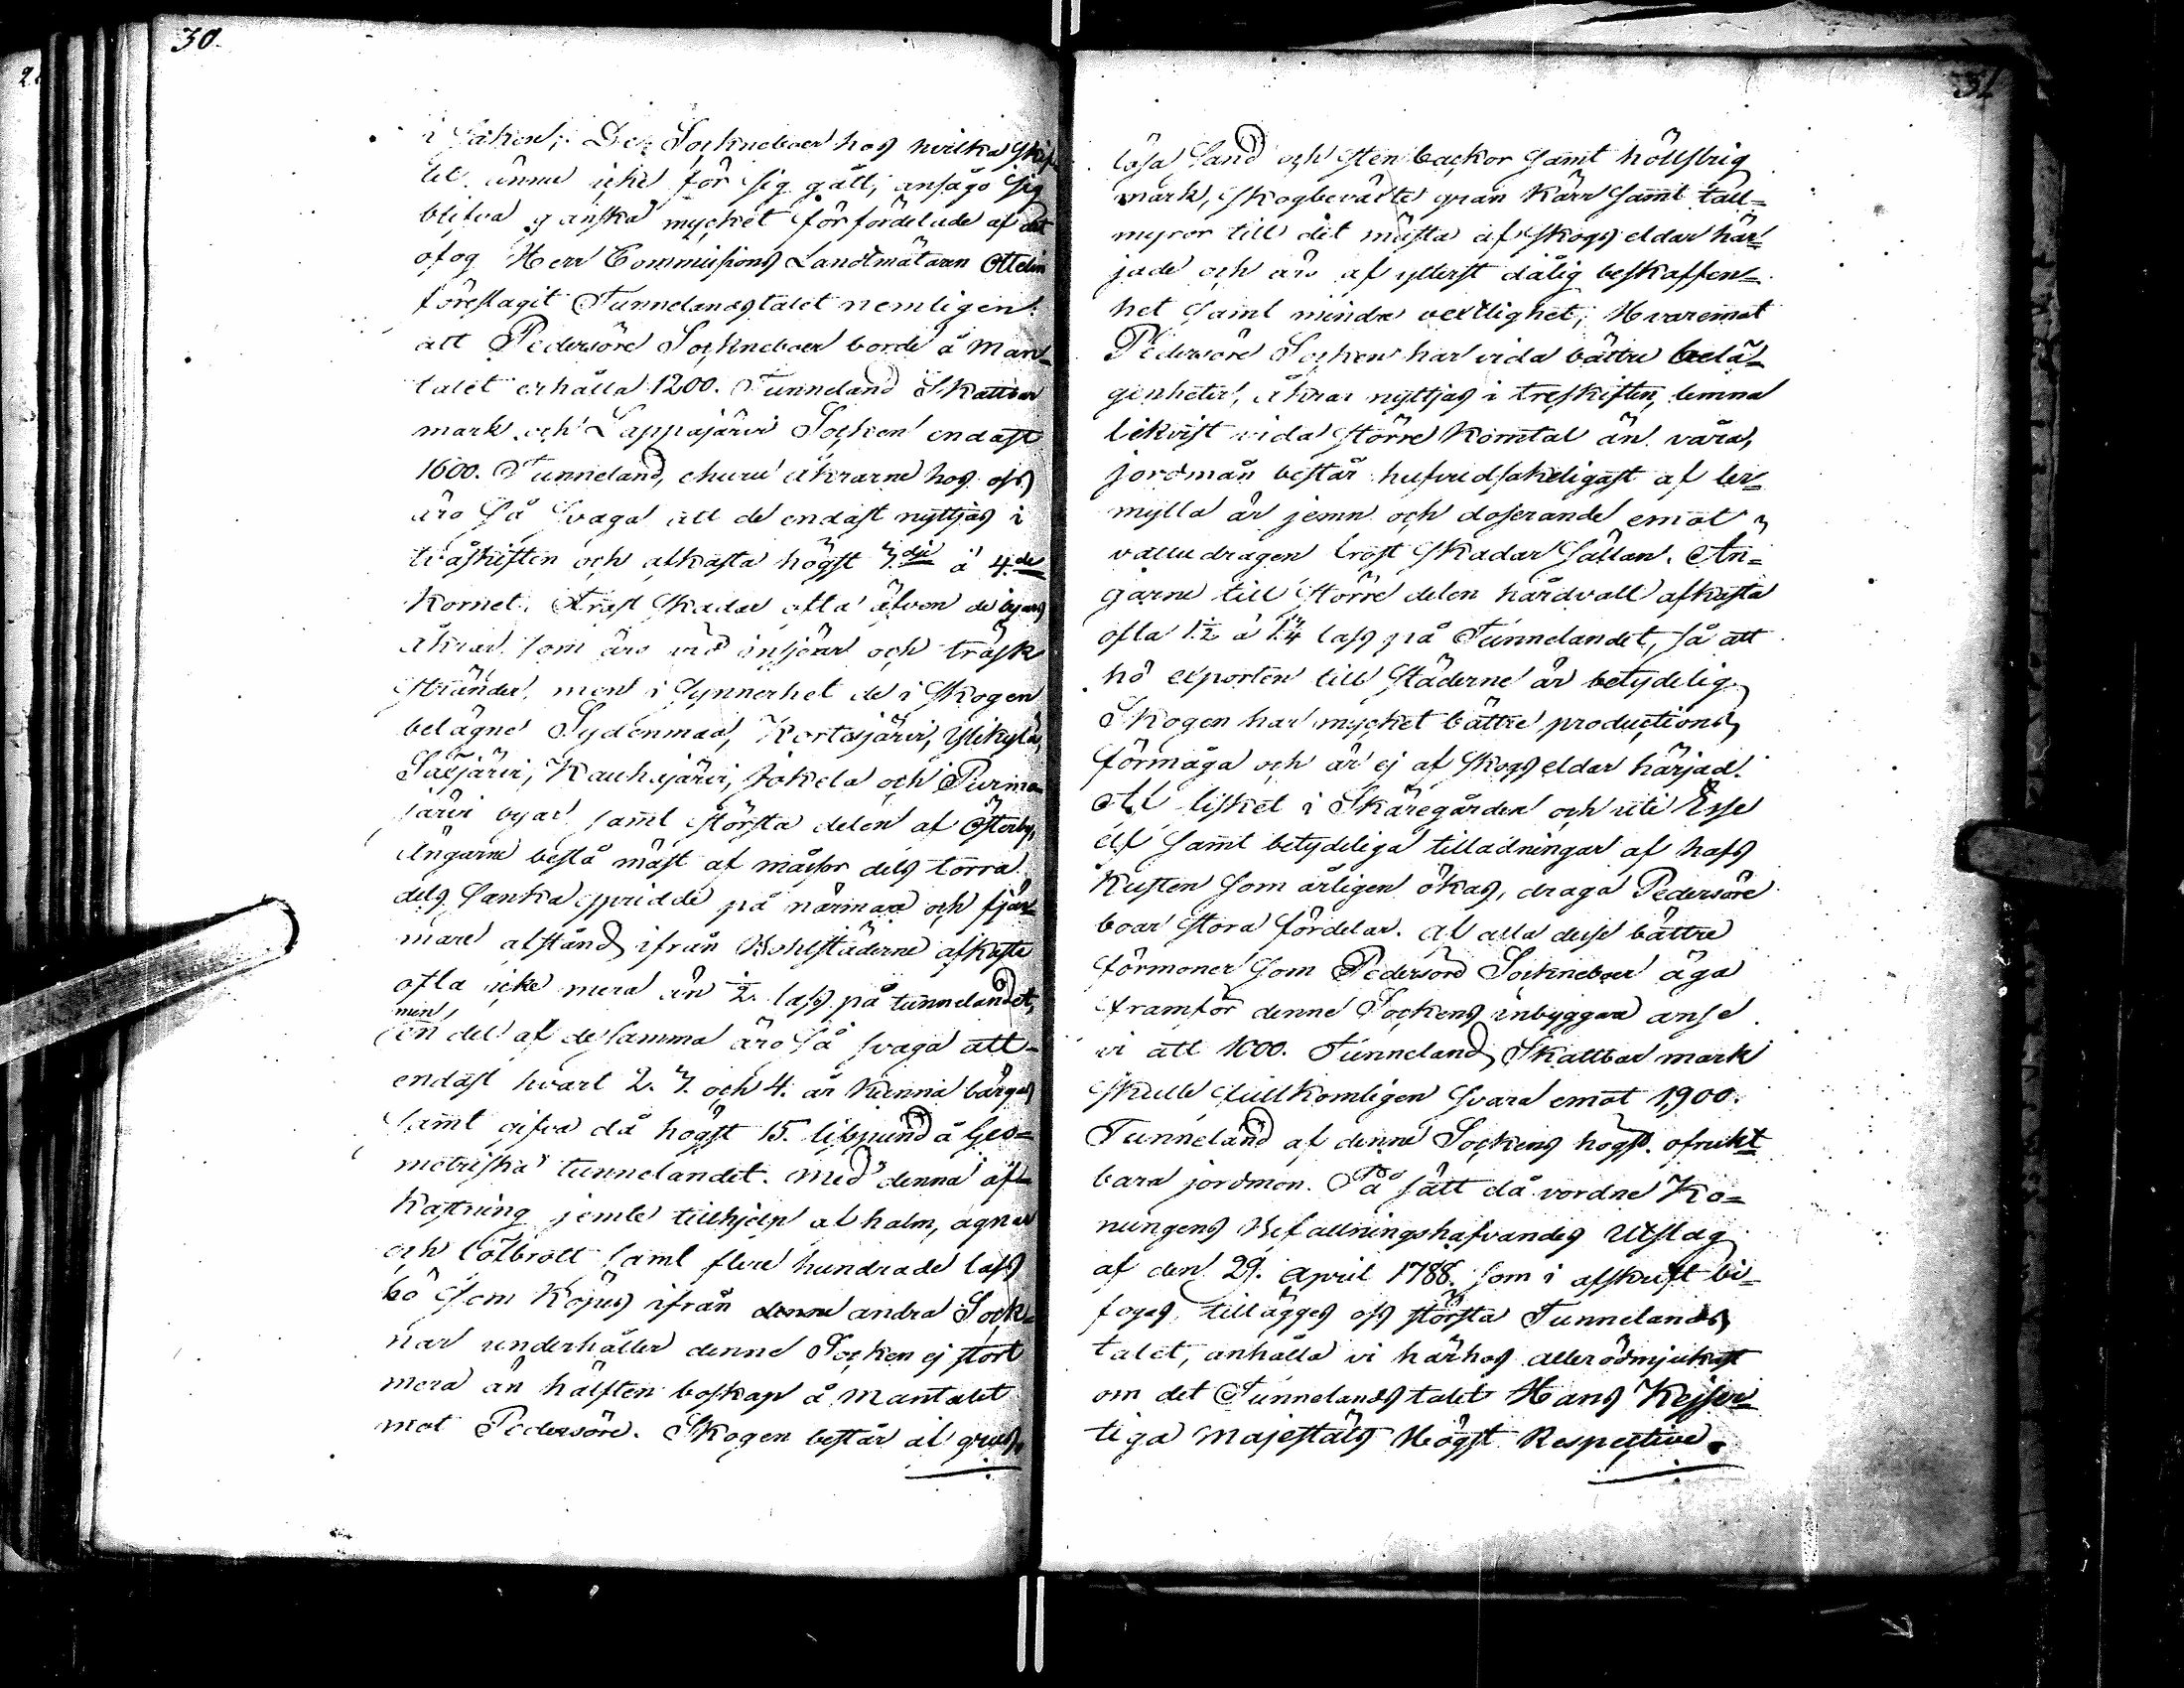 30.
i saken; De Sockneboer hos hvilka skif-
tet ännu icke för sig gått, ansågo sig
blifva ganska mycket förfördelade af det
ofog Herr Commissions Landtmätaren Ottelin
föreslagit Tunnelandstalet nemligen:
att Pedersöre Sockneboer borde å Man-
talet erhålla 1200. Tunneland Skattbar
mark och Lappajärvi Socken endast
1600. Tunneland, ehuru åkrarne hos oss
äro så svaga att de endast nyttjas i
tvåskiften och afkasta högst 3.dje à 4.de
Kornet. Frost skadar ofta äfven de byars
åkrar som äro vid insjöar och träsk
stränder, men i synnerhet de i skogen
belägne Sydenmaa, Kortesjärvi, Ylikylä,
Saejärvi, Kauhajärvi, Jokela och Purmo-
järvi byar samt största delen af Österby,
Ängarne bestå mäst af måssor dels torra
dels sanka spridde på närmare och fjär-
mare afstånd ifrån Bohlstäderne afkasta
ofta icke mera än 1/2 lass på tunnelandet,
men
en del af desamma äro så svaga att
endast hvart 2. 3. och 4. år kunna bärgas
samt gifva då högst 15. lispund å Geo=
metriska tunnelandet. Med denna af=
kastning jemte tillhjelp af halm, agnar
och löfbrott samt flere hundrade lass
hö som köpes ifrån denne andra Sock=
nar underhåller denne Socken ej stort
mera än hälften boskap å Mantalet
mot Pedersöre. Skogen består af grus,
31
lösa sand och sten backor samt hölster
mark, skogbeväxte gran kärr samt tall=
myror till det mästa af skogs eldar här=
jade och äro af ytterst dålig beskaffen=
het samt mindre vextlighet; Hvaremot
Pedersöre Socken har vida bättre belä=
genheter, åkrar nyttjas i treskiften, lemna
likvist vida större Korntal än våra,
jordmån består hufvudsakeligast af ler=
mylla är jemn och doserande emot
vattudragen frost skadar sällan. Än=
garne till större delen hårdvall afkasta
ofta 1 1/2 à 1 3/4 lass på Tunnelandet, så att
hö exporten till städerne är betydelig
Skogen har mycket bättre productions
förmåga och är ej af skogs eldar härjad.
Af fisket i Skäregården och uti Esse
elf samt betydeliga tillandningar af hafs
kusten som årligen ökas, draga Pedersöre
boar stora fördelar. Af alla desse bättre
förmoner som Pedersöre Sockneboer äga
framför denne Sockens inbyggare anse
vi att 1000. Tunneland Skattbar mark
skulle fullkomligen svara emot 1,900.
Tunneland af denne Sockens högst ofrukt
bara jordmon. På sätt då vordne Ko=
nungens Befallningshafvandes Utslag
af den 29. April 1788. som i afskrift bi-
foges, tillägges oss största Tunnelands
talet, anhålla vi härhos allerödmjukast
om det Tunnelands talet Hans Kejser=
liga Majestäts Högst Respective.